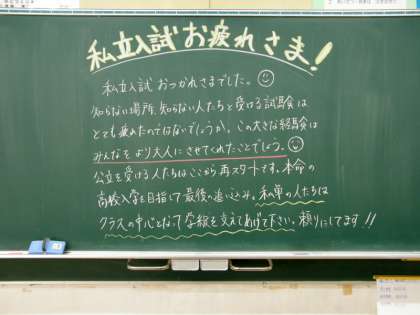 私立入試お疲れさま!
私立入試おつかれさまでした。
知らない場所、知らない人たちと受ける試験は
とても疲れたのではないでしょうか。この大きな経験は
みんなをより大人にさせてくれたことでしょう。
公立を受ける人たちはここから再スタートです。本命の
高校入学を目指して最後の追い込み。私単の人たちは
クラスの中心となって学級を支えてあげて下さい。頼りにしてます!!